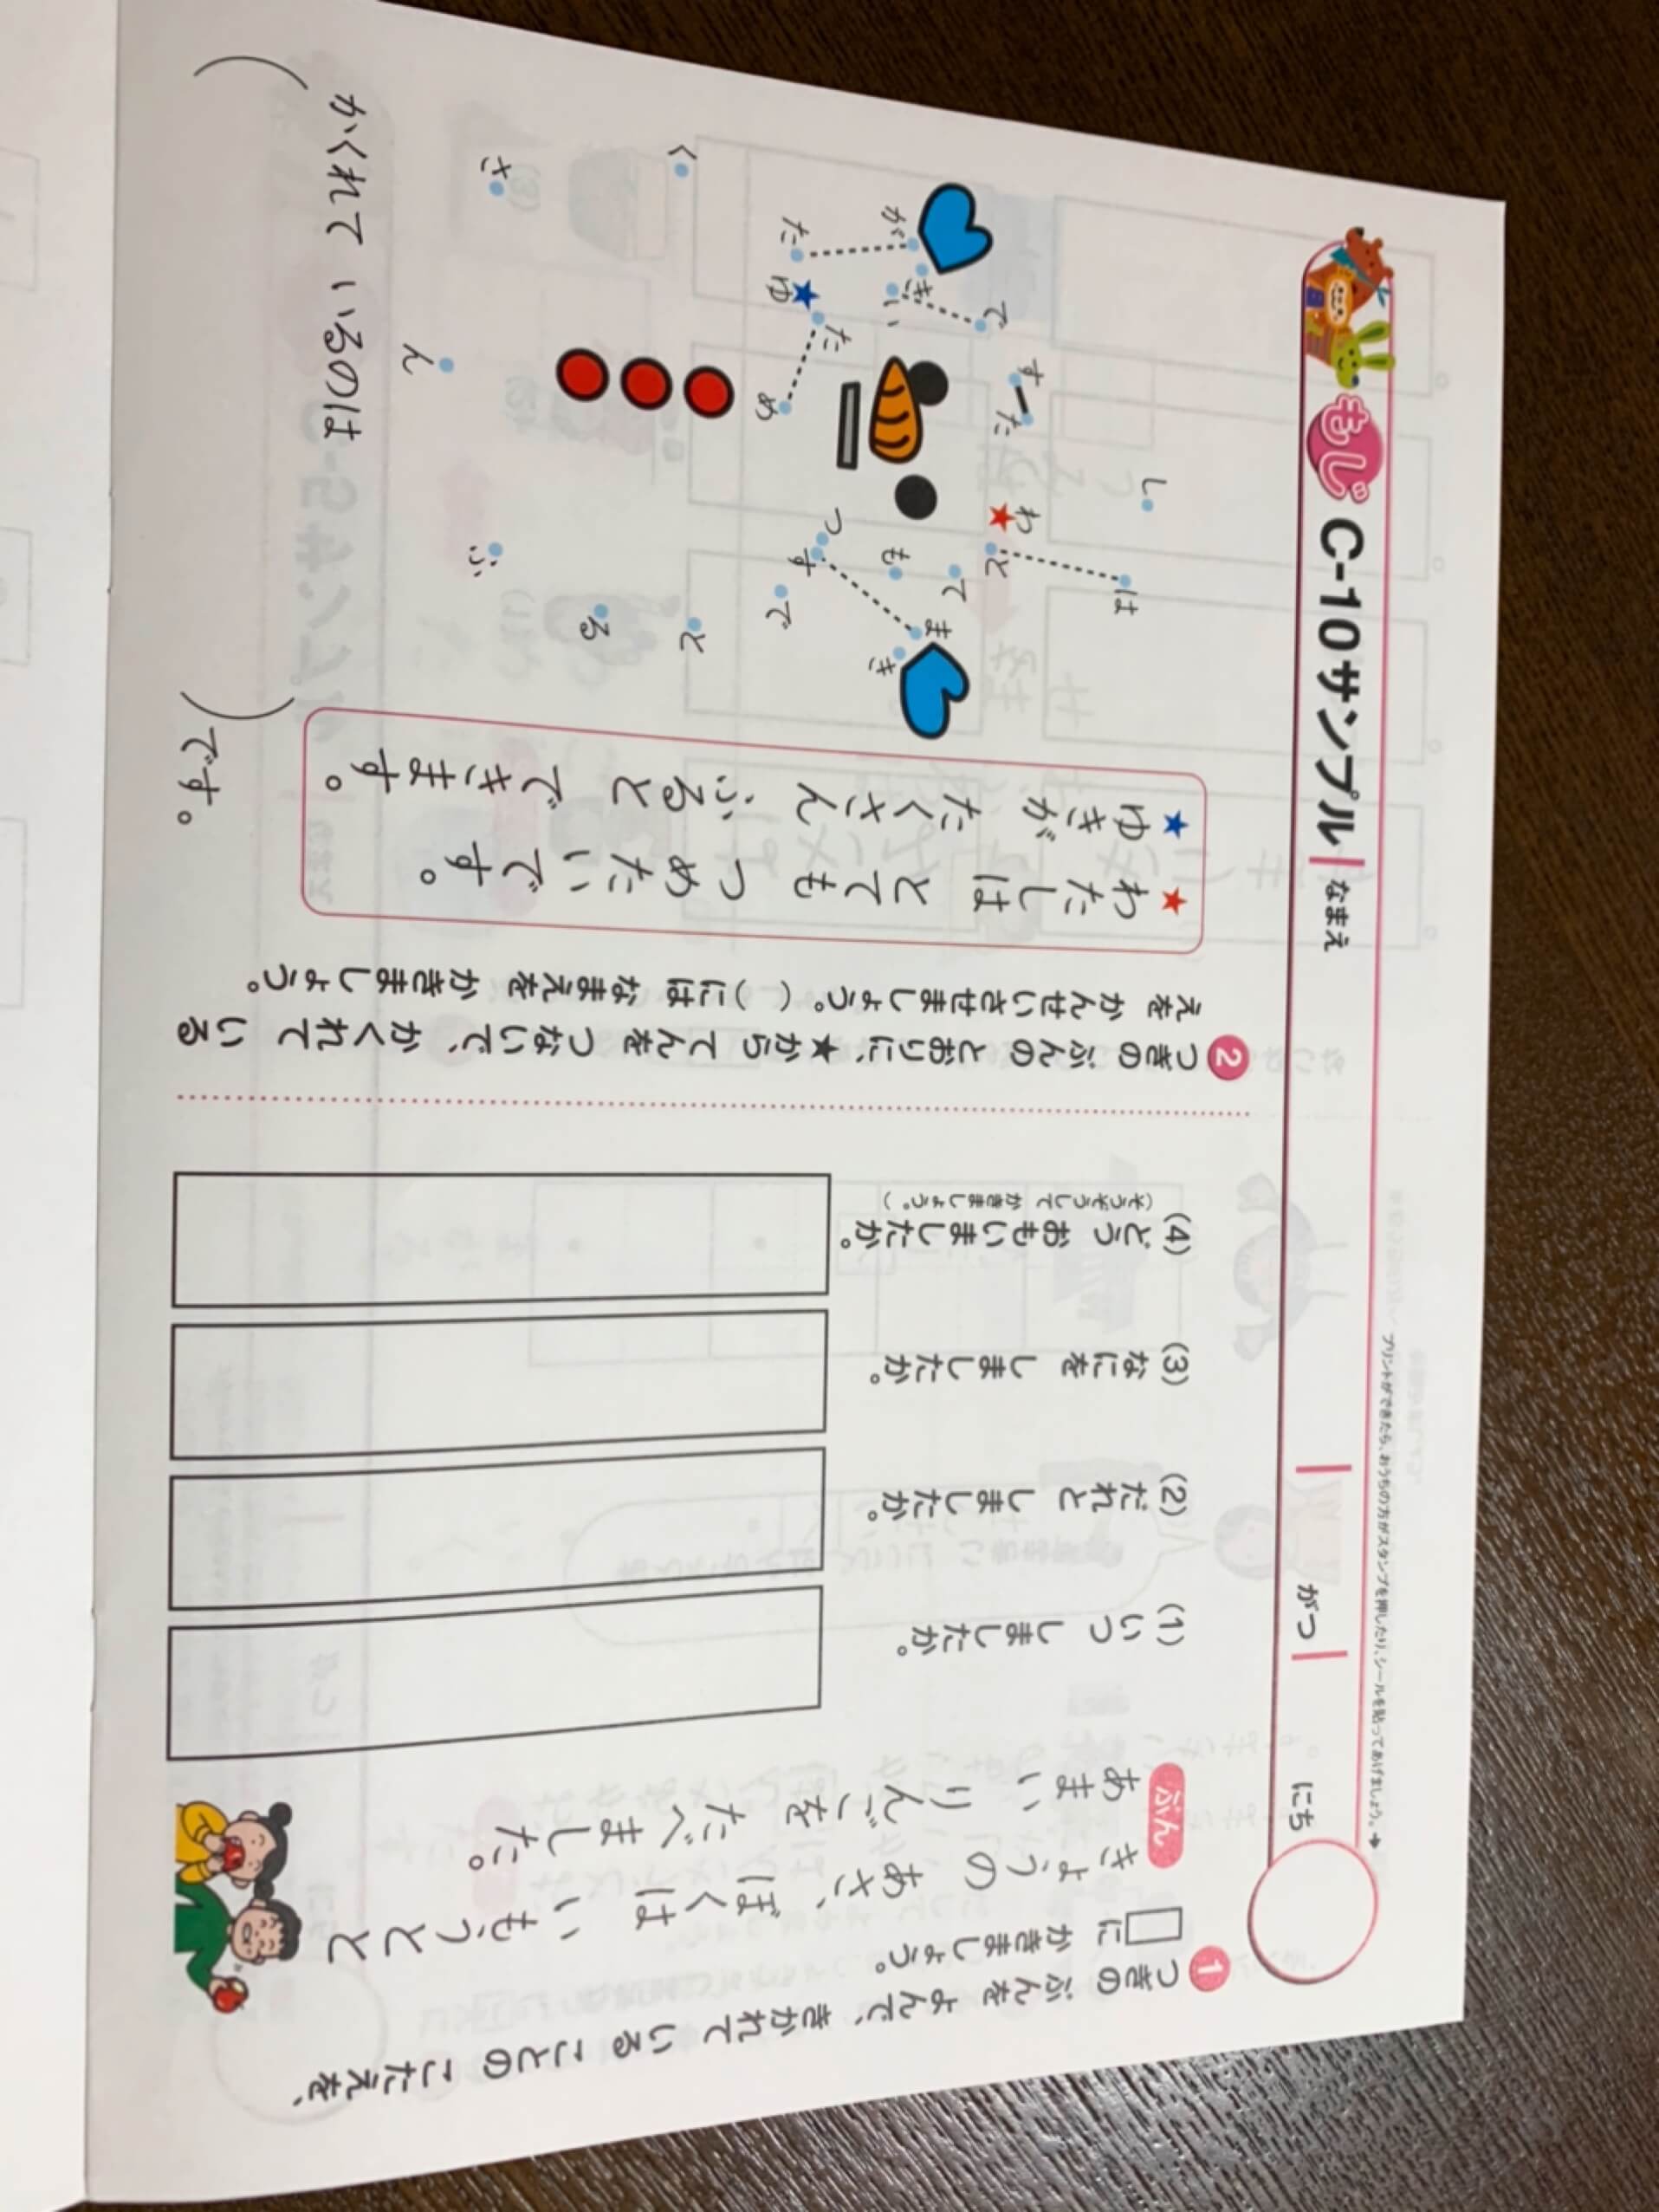 もじ C-10サンプル
なまえ
がつ
にち
プリントができたら、おうちの方がスタンプを押したり、シールを貼ってあげましょう。➔
1 つぎの ぶんを よんで、きかれて いる ことの こたえを、
□に かきましょう。
ぶん
きょうの あさ、ぼくは いもうとと
あまい りんごを たべました。
(1) いつ しましたか。
(2) だれと しましたか。
(3) なにを しましたか。
(4) どう おもいましたか。
(そうぞうして かきましょう。)
2 つぎの ぶんの とおりに、★から てんを つないで、かくれて いる
えを かんせいさせましょう。( )には なまえを かきましょう。
★わたしは とても つめたいです。
★ゆきが たくさん ふると できます。
し
は
わ
と
す
た
で
き
い
が
た
ゆ
た
め
て
も
ま
き
つ
す
で
と
る
ぶ
ん
さ
く
かくれて いるのは
( )です。